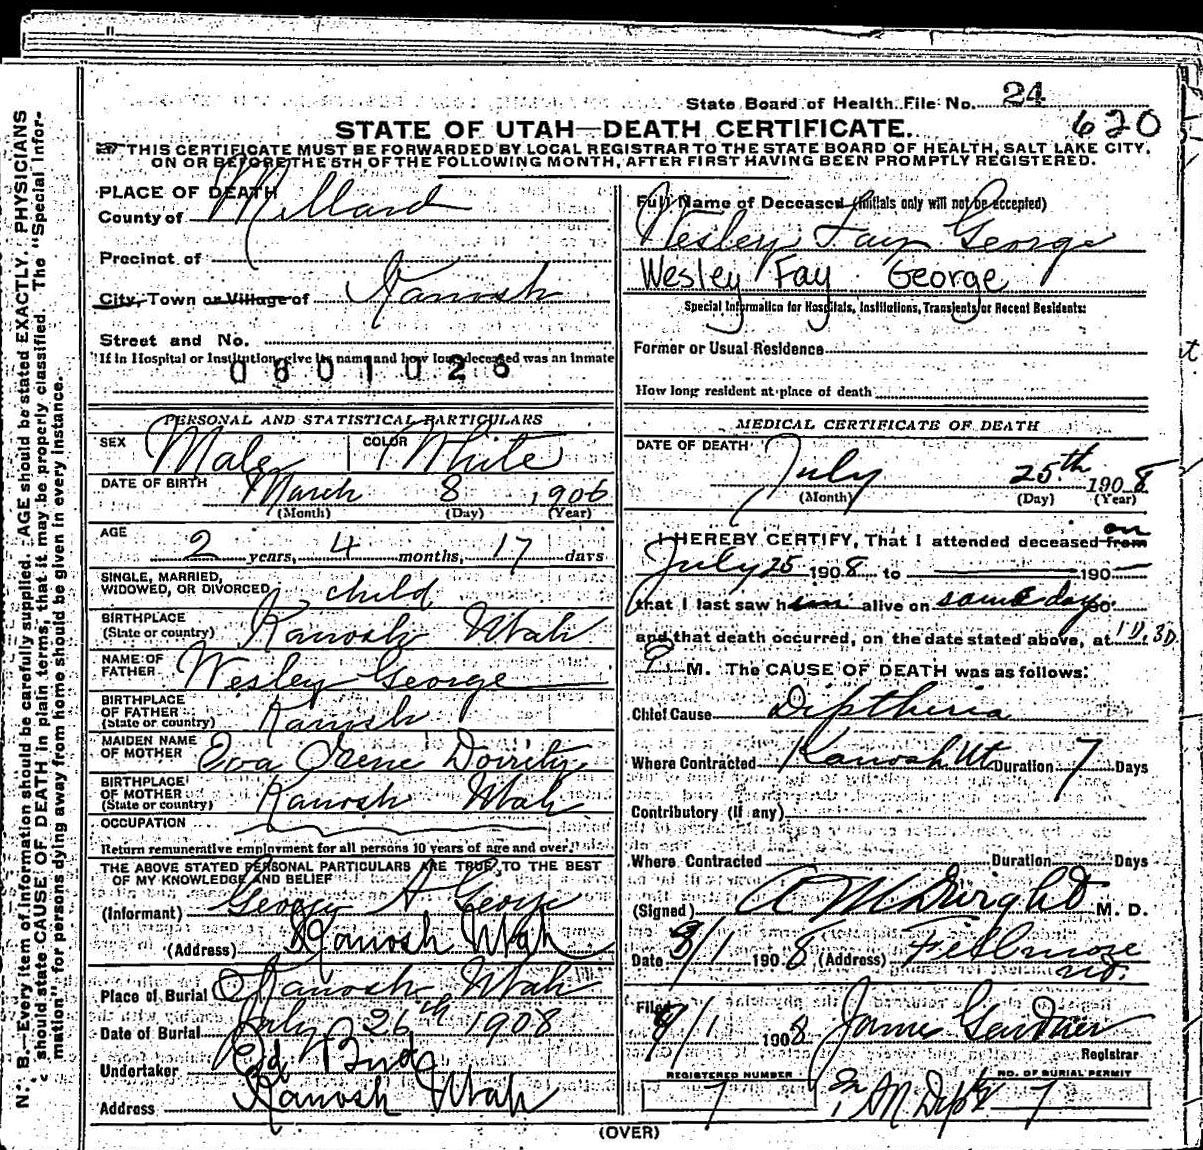 State Board of Health File No. 24
620
STATE OF UTAH—DEATH CERTIFICATE.
THIS CERTIFICATE MUST BE FORWARDED BY LOCAL REGISTRAR TO THE STATE BOARD OF HEALTH, SALT LAKE CITY,
ON OR BEFORE THE 5TH OF THE FOLLOWING MONTH, AFTER FIRST HAVING BEEN PROMPTLY REGISTERED.
N. B.—Every item of information should be carefully supplied. AGE should be stated EXACTLY. PHYSICIANS
should state CAUSE OF DEATH in plain terms, that it may be properly classified. The "Special Infor-
mation" for persons dying away from home should be given in every instance.
PLACE OF DEATH
County of Millard
Precinct of
City, Town or Village of Kanosh
Street and No.
If in Hospital or Institution, give its name and how long deceased was an inmate
0801026
PERSONAL AND STATISTICAL PARTICULARS
SEX Male COLOR White
DATE OF BIRTH March 8 1906
(Month) (Day) (Year)
AGE 2 years, 4 months, 17 days
SINGLE, MARRIED,
WIDOWED, OR DIVORCED child
BIRTHPLACE
(State or country) Kanosh Utah
NAME OF
FATHER Wesley George
BIRTHPLACE
OF FATHER
(State or country) Kanosh
MAIDEN NAME
OF MOTHER Eva Irene Dorrity
BIRTHPLACE
OF MOTHER
(State or country) Kanosh Utah
OCCUPATION
Return remunerative employment for all persons 10 years of age and over.
THE ABOVE STATED PERSONAL PARTICULARS ARE TRUE TO THE BEST
OF MY KNOWLEDGE AND BELIEF
(Informant) George A George
(Address) Kanosh Utah
Place of Burial Kanosh Utah
Date of Burial July 26th 1908
Undertaker Ed
Address Kanosh Utah
Full Name of Deceased (Initials only will not be accepted)
Wesley Fay George
Wesley Fay George
Special Information for Hospitals, Institutions, Transients or Recent Residents:
Former or Usual Residence
How long resident at place of death
MEDICAL CERTIFICATE OF DEATH
DATE OF DEATH July 25th 1908
(Month) (Day) (Year)
I HEREBY CERTIFY, That I attended deceased from on
July 25 1908 to 190
that I last saw him alive on same day 190
and that death occurred, on the date stated above, at
P M. The CAUSE OF DEATH was as follows:
Chief Cause Diptheria
Where Contracted Kanosh Ut Duration 7 Days
Contributory (if any)
Where Contracted Duration Days
(Signed) M. D.
Date 8/1 1908 (Address) Fillmore
Filed 8/1 1908 James Gardner
Registrar
REGISTERED NUMBER NO. OF BURIAL PERMIT
7 7
(OVER)